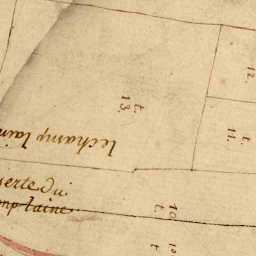 t.
13.
12.
t.
11.
lechamp lain
serte du
mp laine
10
t.
10
t